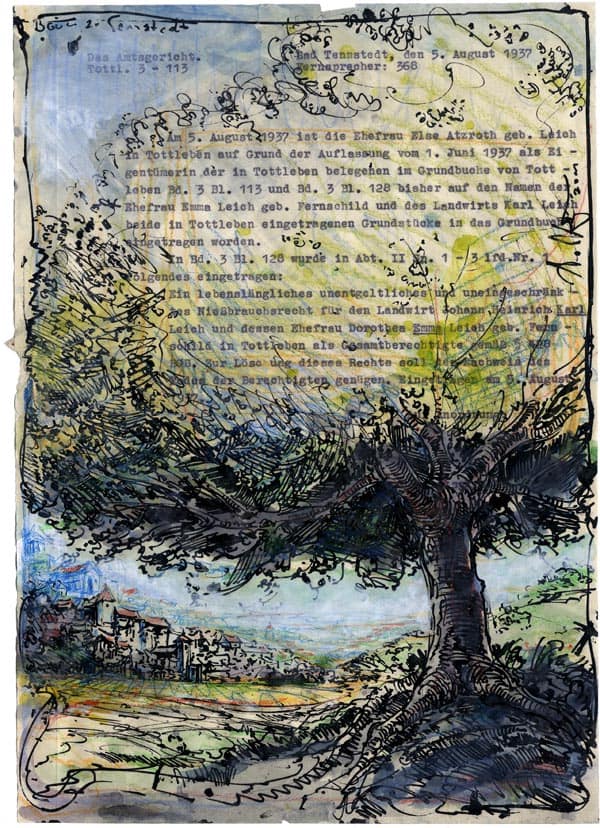 Bad Tennstedt, den 5. August 1937
Das Amtsgericht.
Tottl. 3 - 113
Fernsprecher: 368
Am 5. August 1937 ist die Ehefrau Else Atzroth geb. Leich
in Tottleben auf Grund der Auflassung vom 1. Juni 1937 als Ei -
gentümerin der in Tottleben belegenen im Grundbuche von Tott
leben Bd. 3 Bl. 113 und Bd. 3 Bl. 128 bisher auf den Namen der
Ehefrau Emma Leich geb. Fernschild und des Landwirts Karl Leich
beide in Tottleben eingetragenen Grundstücke in das Grundbuch
eingetragen worden.
In Bd. 3 Bl. 128 wurde in Abt. II 1 - 3 lfd.Nr. 1
folgendes eingetragen:
Ein lebenslängliches unentgeltliches und uneingeschränk -
tes Nießbrauchsrecht für den Landwirt Johann Heinrich Karl
Leich und dessen Ehefrau Dorothea Emma Leich geb. Fern -
schild in Tottleben als Gesamtberechtigte gemäß § 428
BGB. Zur Lösc ung dieses Rechts soll der Nachweis des
Todes der Berechtigten genügen. Eingetragen am 5. August